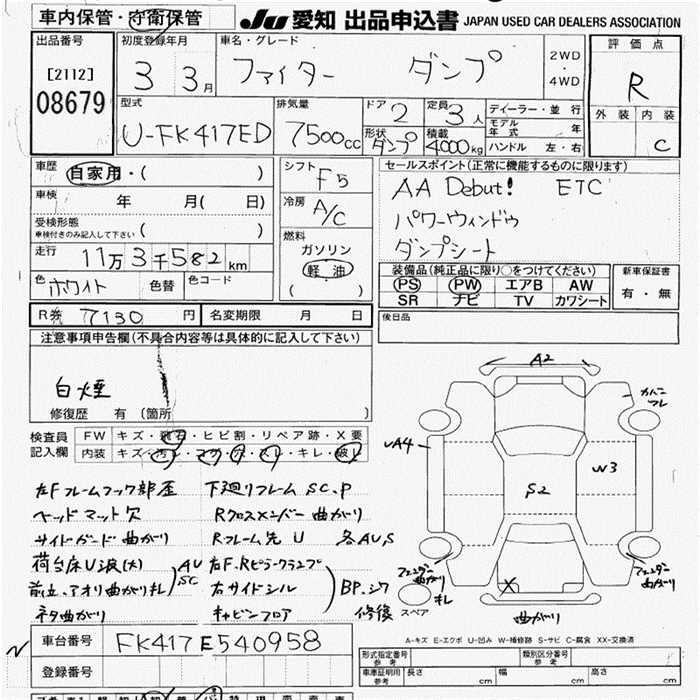 車内保管・守衛保管
JU 愛知 出品申込書 JAPAN USED CAR DEALERS ASSOCIATION
出品番号
[2112]
08679
初度登録年月
3 3月
車名・グレード
ファイター ダンプ
2WD
・
4WD
評価点
R
外装 内装
C
型式
U-FK417ED
排気量
7500cc
ドア
2
定員
3人
形状
ダンプ
積載
4000kg
ディーラー・並行
モデル年式 年
ハンドル 左・右
車歴
自家用・( )
車検
年 月( 日)
受検形態
車検付きのみ記入して下さい ( )
走行
11万3千582km
色
ホワイト
色替
色コード
シフト
F5
冷房
A/C
燃料
ガソリン
軽油
( )
セールスポイント(正常に機能するものに限ります)
AA Debut! ETC
パワーウィンドゥ
ダンプシート
装備品(純正品に限り○をつけてください)
PS PW エアB AW
SR ナビ TV カワシート
新車保証書
有・無
R券 7130円
名変期限 月 日
後日品
注意事項申告欄(不具合内容等は具体的に記入して下さい)
白煙
修復歴 有 (箇所 )
検査員
記入欄
FW キズ・飛石・ヒビ割・リペア跡・X要
内装 キズ・汚レ・コゲ・穴・スレ・キレ・破レ
左Fフレームフック部歪
ベッドマット欠
サイドガード曲がり
荷台床U波(大)
前立、アオリ曲がりキレ
ネタ曲がり
AU
SC
下廻りフレームSC.P
Rクロスメンバー曲がり
Rフレーム先U 各AU,S
左F.Rピラークランプ
右サイドシル
キャビンフロア
BP.シワ
修復
A2
カバー
フレ
A4
W3
S2
フェンダー
曲がり
キレ
スペア
X
フェンダー
曲がり
曲がり
A-キズ E-エクボ U-凹み W-補修跡 S-サビ C-腐食 XX-交換済
車台番号 FK417E540958
登録番号
形式指定番号
参考
類別区分番号
参考
車庫証明用
参考
長さ cm 幅 cm 高さ cm